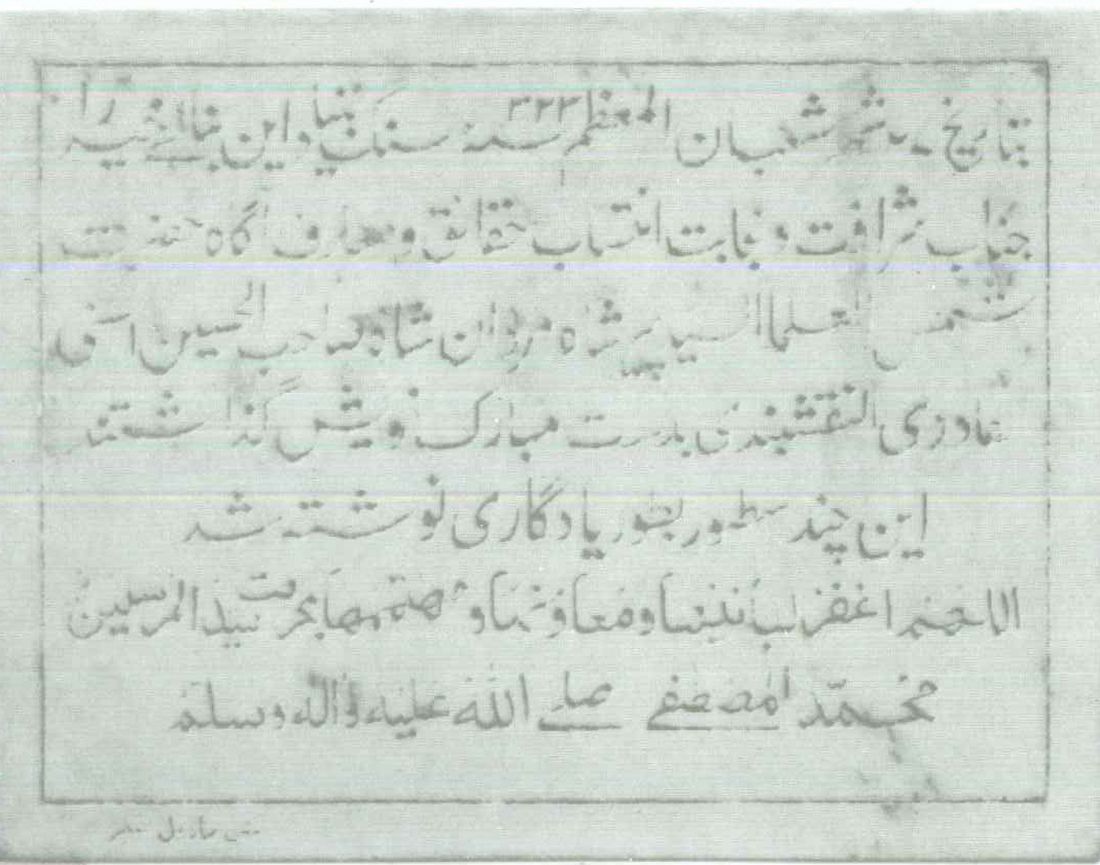 بتاریخ شهر شعبان المعظم سنه ۳۲۳ سنگ بنیاد این بنائے خیر را
جناب شرافت و نجابت انتساب حقائق و معارف آگاه حضرت
شمس العلما السید پیر شاه مردان شاه صاحب الحسین
قادری النقشبندی بدست مبارک خویش گذاشتند
این چند سطور بطور یادگاری نوشته شد
اللهم اغفر لبانیها و معاونها و مهتممها بحرمت سید المرسلین
محمّد المصطفے صلے اللہ علیه واله وسلم